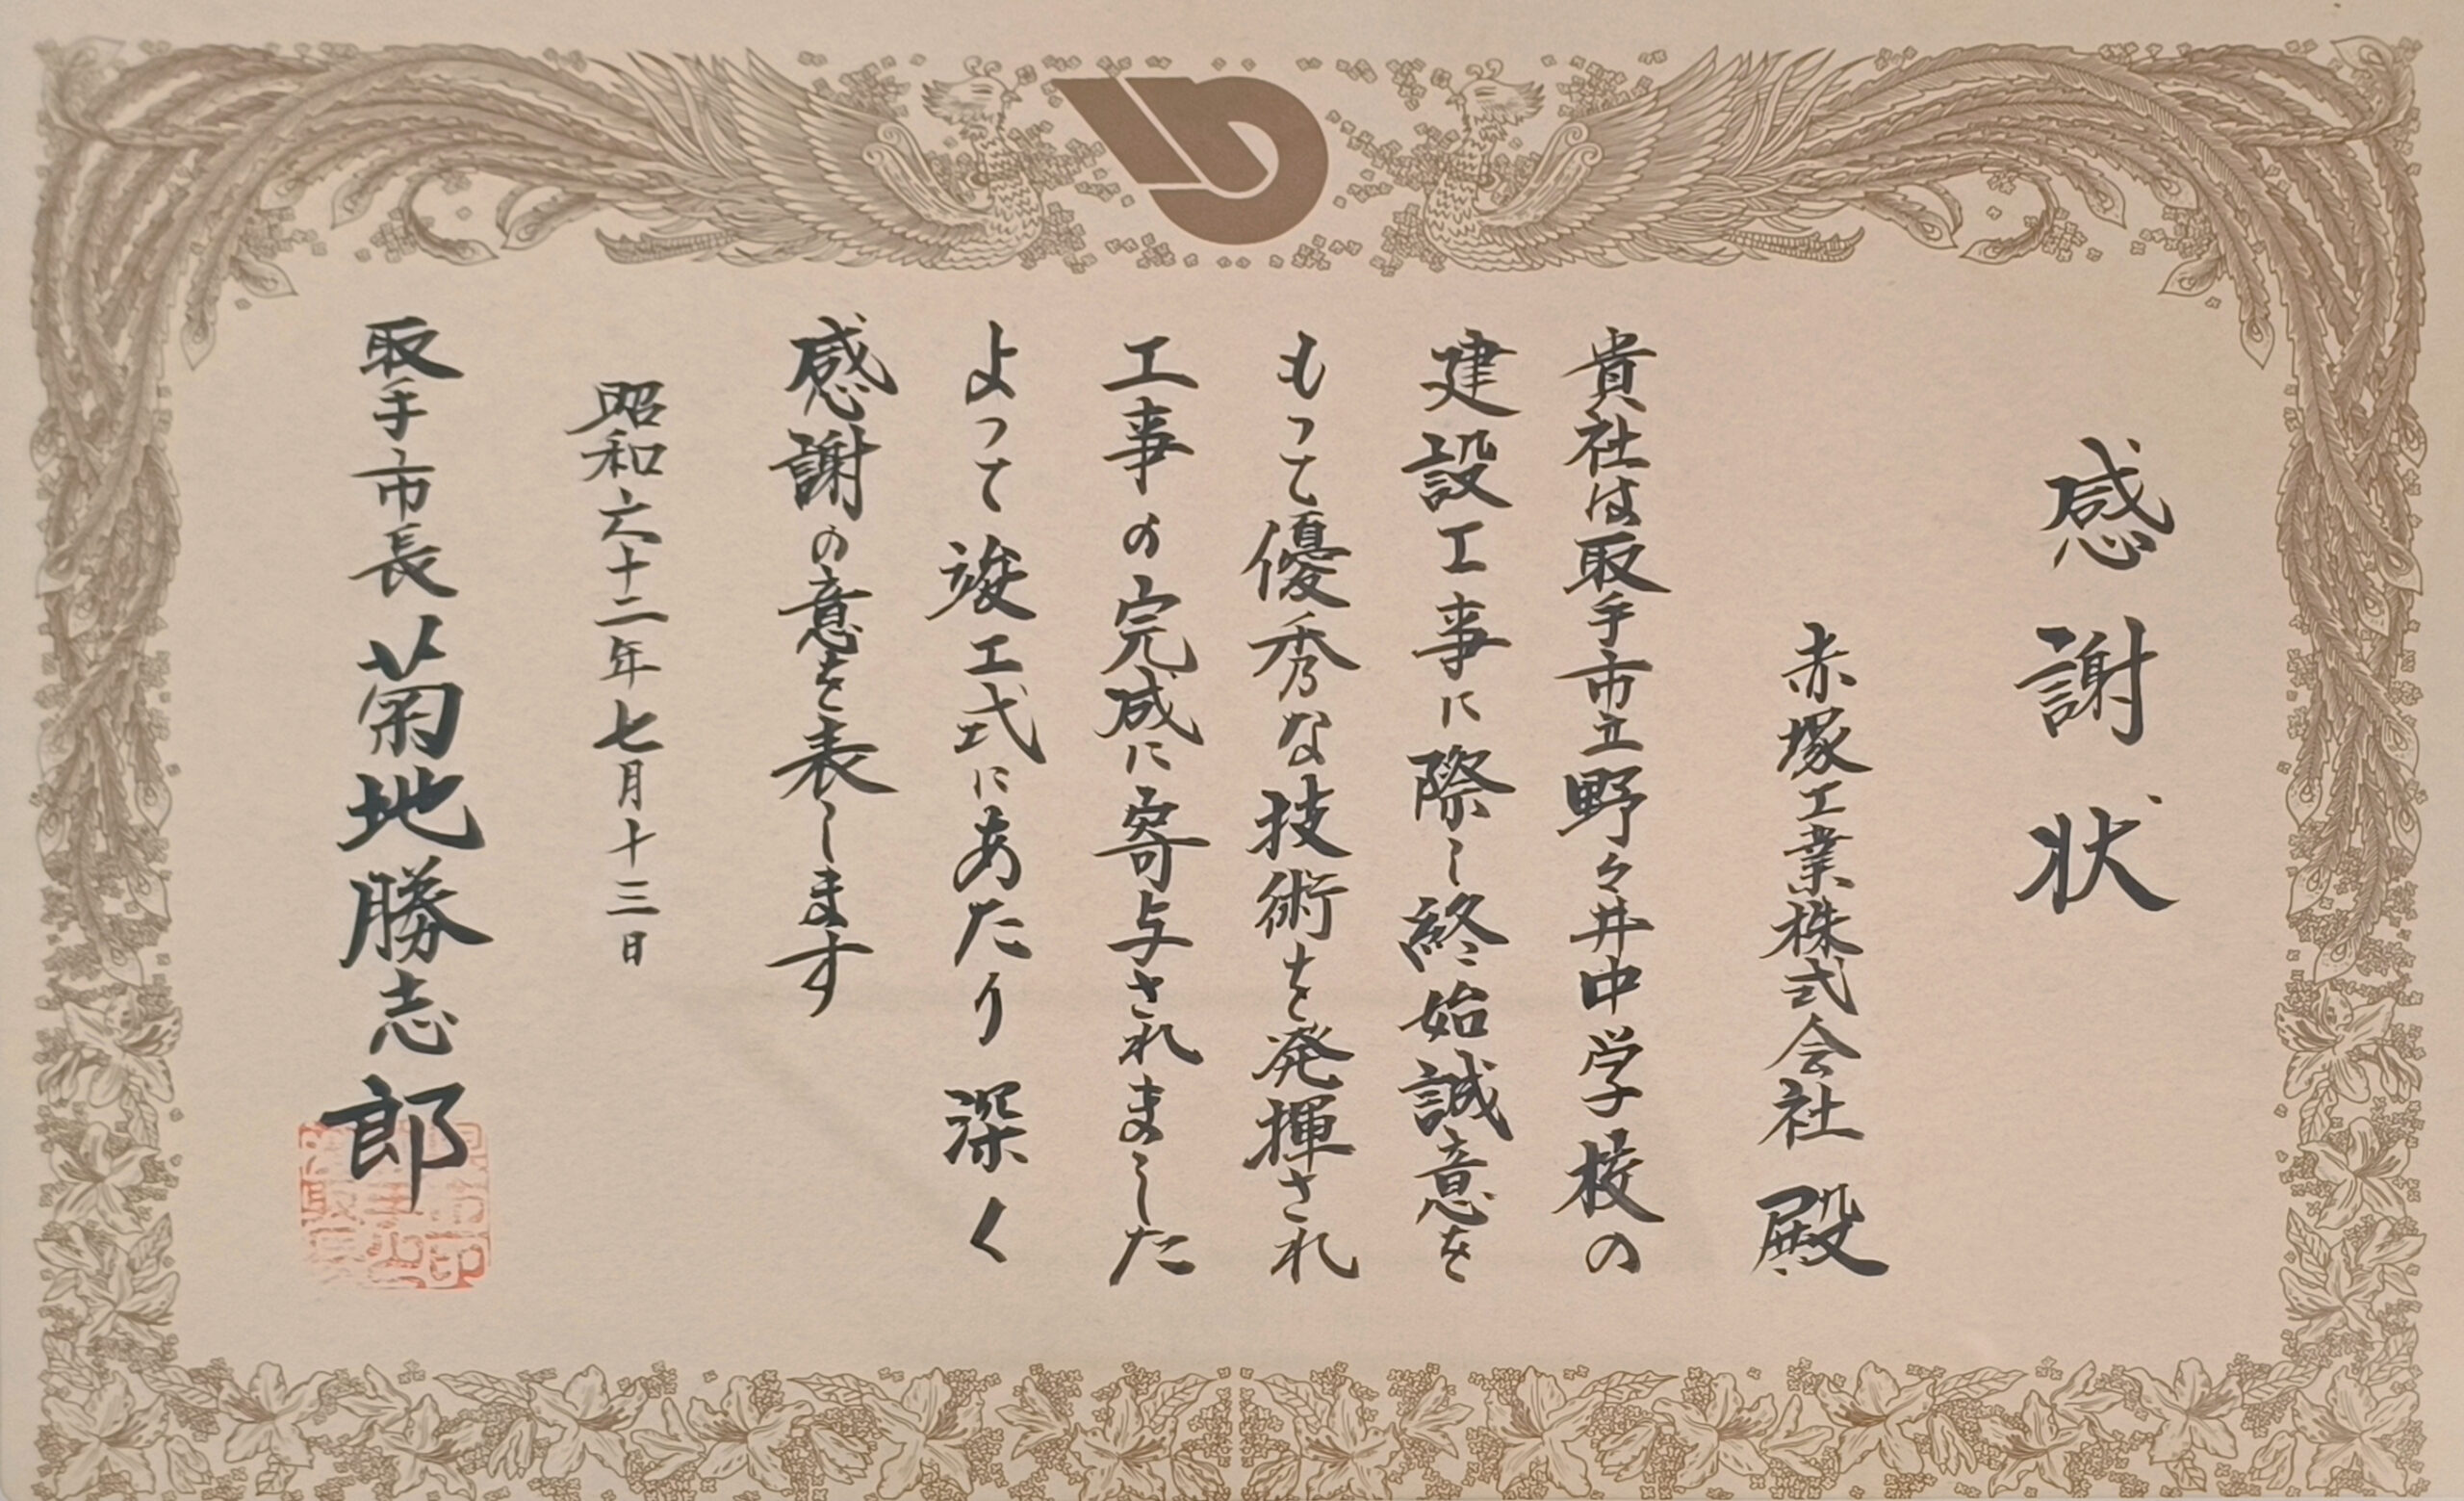 感謝状
赤塚工業株式会社 殿
貴社は取手市立野々井中学校の
建設工事に際し終始誠意を
もって優秀な技術を発揮され
工事の完成に寄与されました
よって竣工式にあたり深く
感謝の意を表します
昭和六十二年七月十三日
取手市長 菊地勝志郎